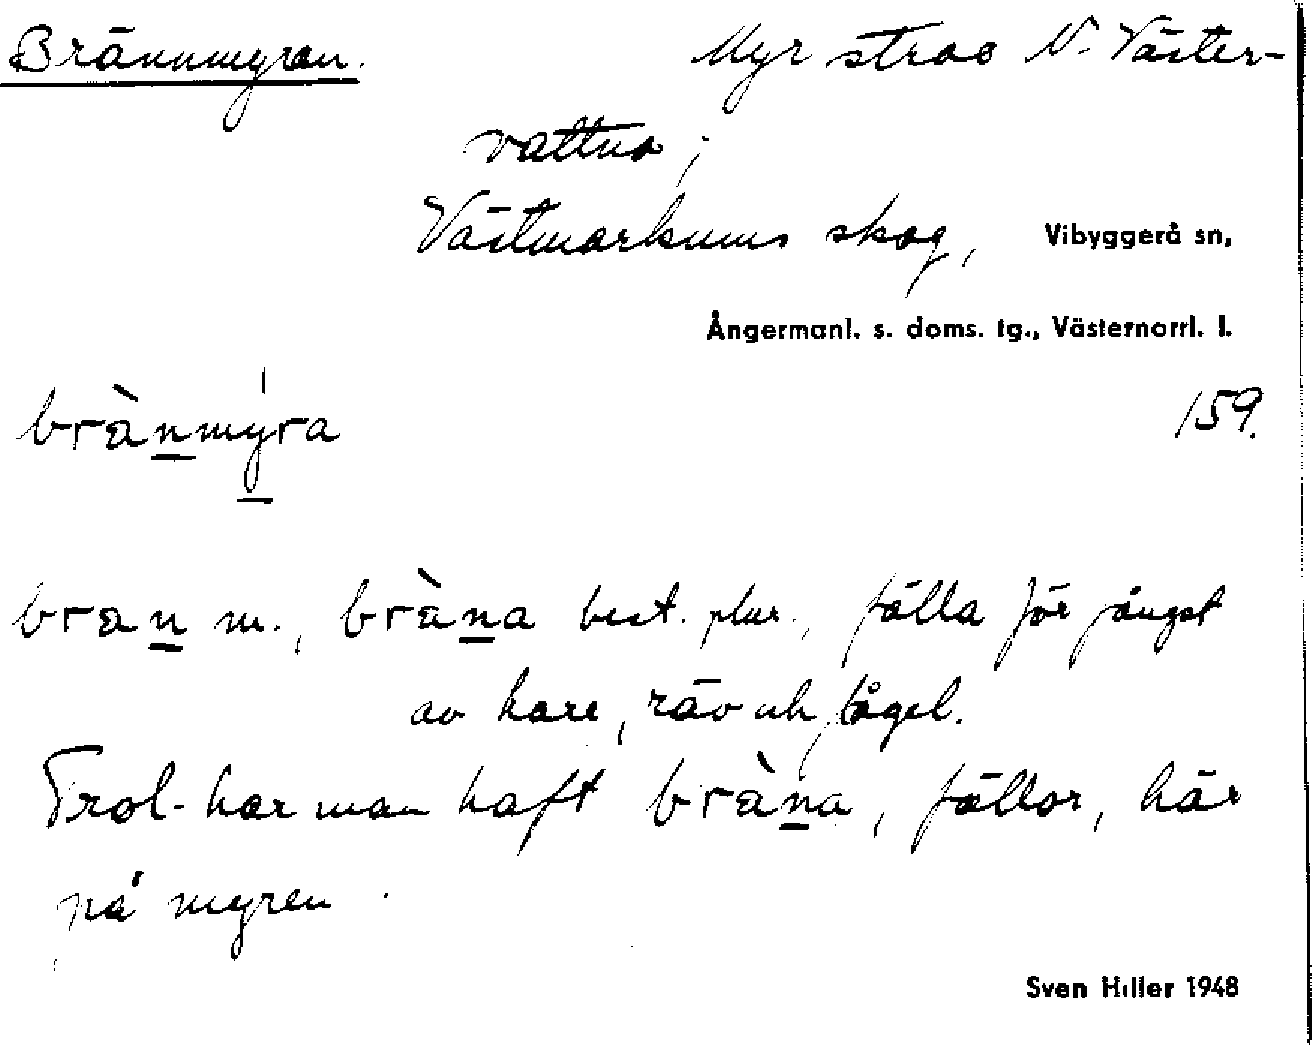 Brännmyren. Myr strax N. Väster-
vattna;
Västmarkums skog, Vibyggerå sn,
Ångermanl. s. doms. tg., Västernorrl. l.
brànmýra 159.
bran m., bràna best. plur., fälla för fångst
av hare, räv och fågel.
Trol. har man haft bràna, fällor, här
på myren.
Sven Hiller 1948